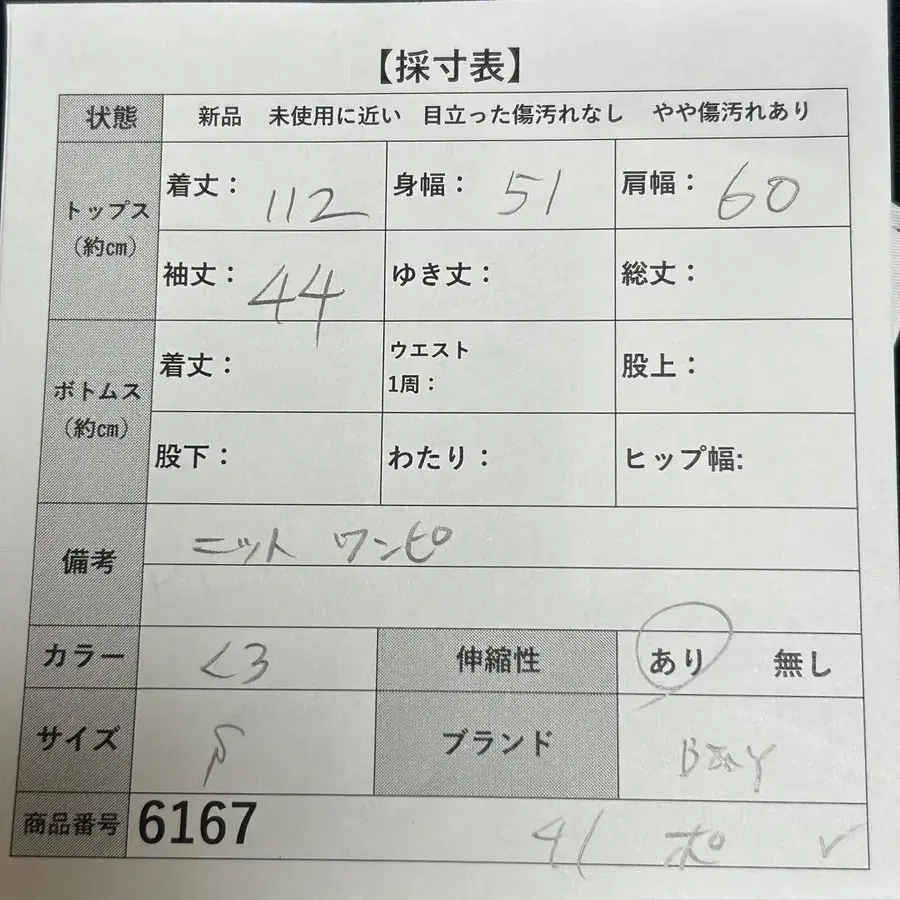 【採寸表】
状態 新品 未使用に近い 目立った傷汚れなし やや傷汚れあり
トップス
(約cm)
着丈: 112 身幅: 51 肩幅: 60
袖丈: 44 ゆき丈: 総丈:
ボトムス
(約cm)
着丈: ウエスト
1周: 股上:
股下: わたり: ヒップ幅:
備考 ニット ワンピ
カラー くろ 伸縮性 あり 無し
サイズ ブランド
商品番号 6167 41 ポ